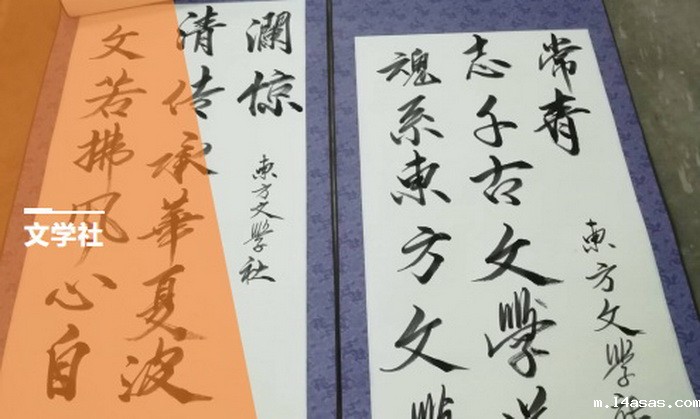 文学社
文若拂风心自
清传承華夏波
澜惊
東方文學社
魂系東方文
志千古文學
常青
東方文學
m.14asas.com